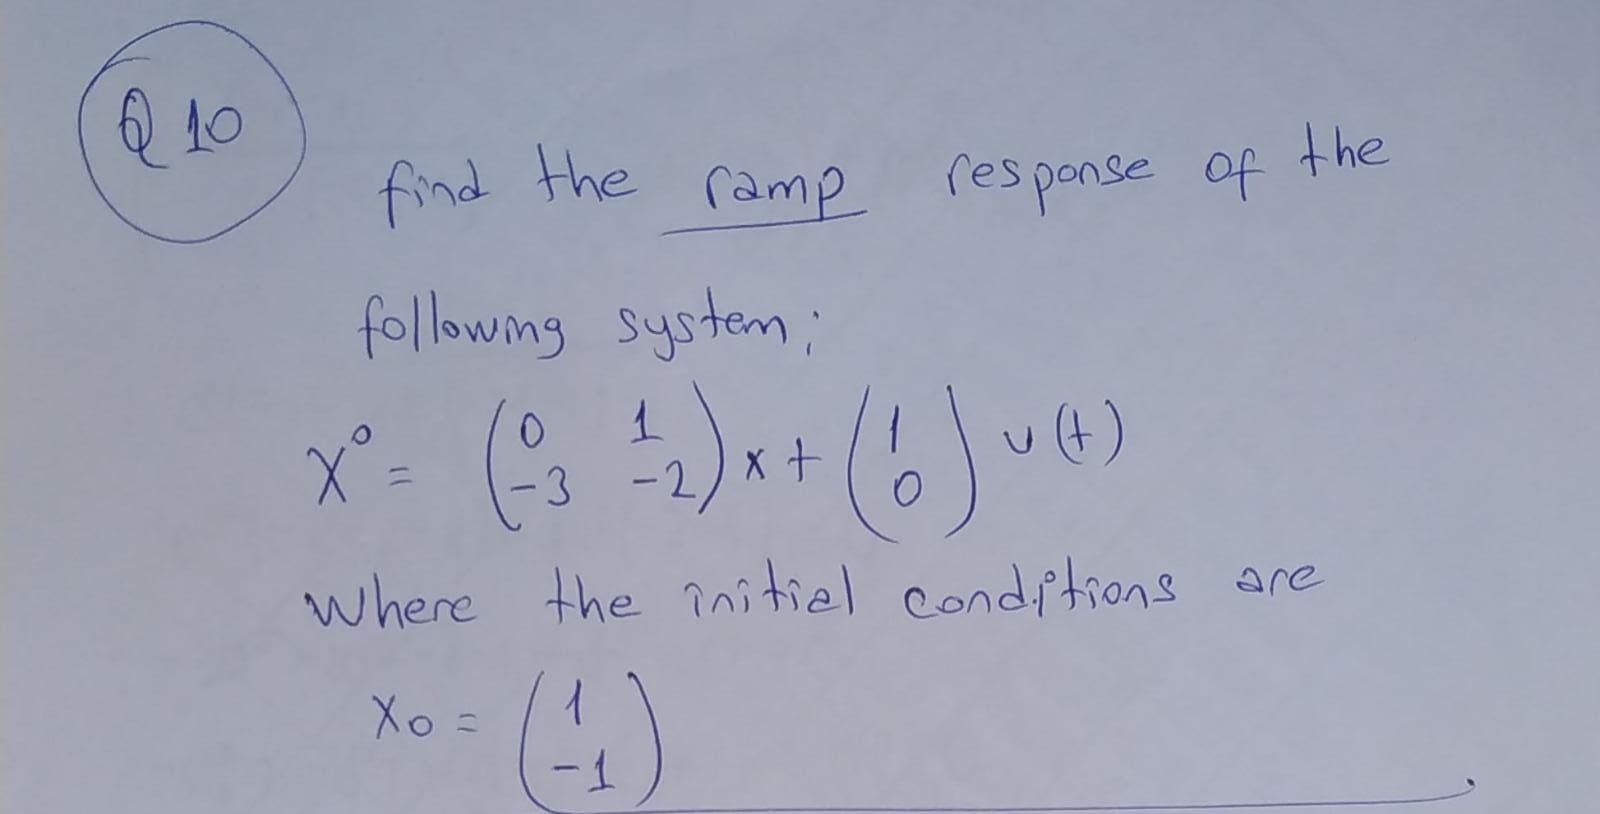 Q 10
find the ramp response of the
following system;
X° = (0 1 -3 -2) x + (1 0) u(t)
Where the initial conditions are
X0 = (1 -1)